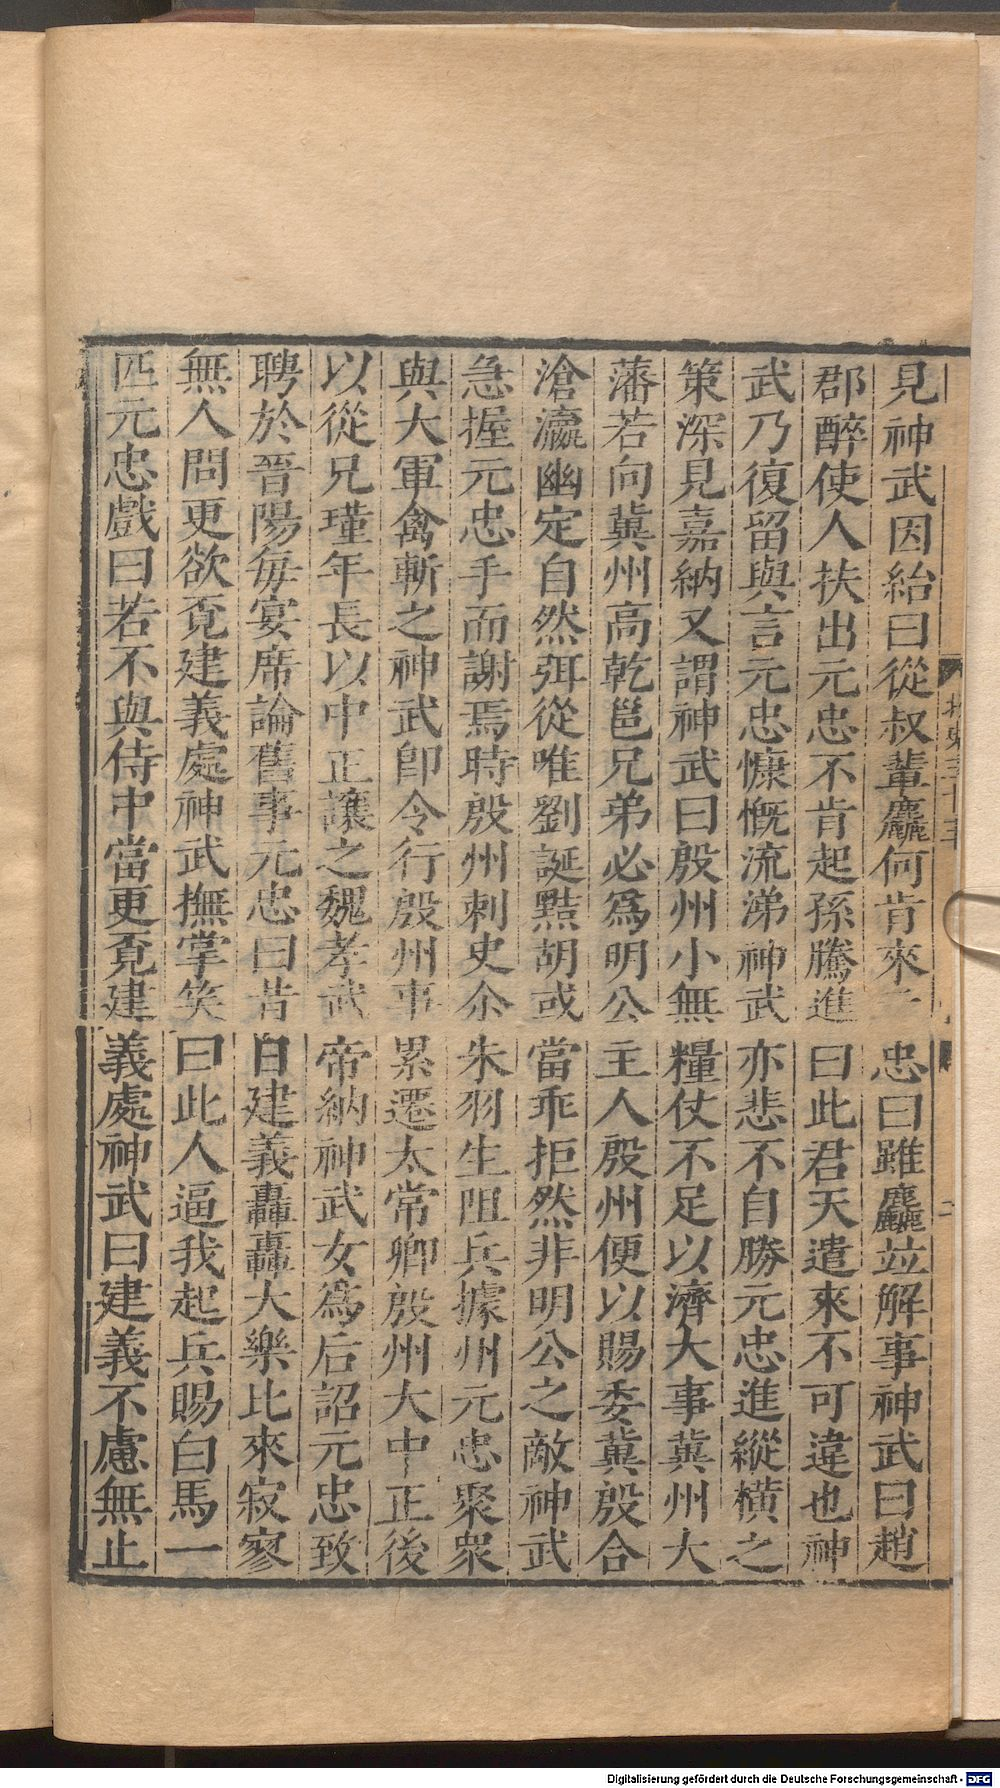 見神武因紿曰從叔輩麤何肯來元忠曰雖麤竝解事神武曰趙
郡醉使人扶出元忠不肯起孫騰進曰此君天遣來不可違也神
武乃復留與言元忠慷慨流涕神武亦悲不自勝元忠進縱橫之
策深見嘉納又謂神武曰殷州小無糧仗不足以濟大事冀州大
藩若向冀州高乾邕兄弟必爲明公主人殷州便以賜委冀殷合
滄瀛幽定自然弭從唯劉誕黠胡或當乖拒然非明公之敵神武
急握元忠手而謝焉時殷州刺史尒朱羽生阻兵據州元忠聚衆
與大軍禽斬之神武卽令行殷州事累遷太常卿殷州大中正後
以從兄瑾年長以中正讓之魏孝武帝納神武女爲后詔元忠致
聘於晉陽每宴席論舊事元忠曰昔日建義轟轟大樂比來寂寥
無人問更欲覔建義處神武撫掌笑曰此人逼我起兵賜白馬一
匹元忠戲曰若不與侍中當更覔建義處神武曰建義不慮無止
北史三十三
二
Digitalisierung gefördert durch die Deutsche Forschungsgemeinschaft - DFG